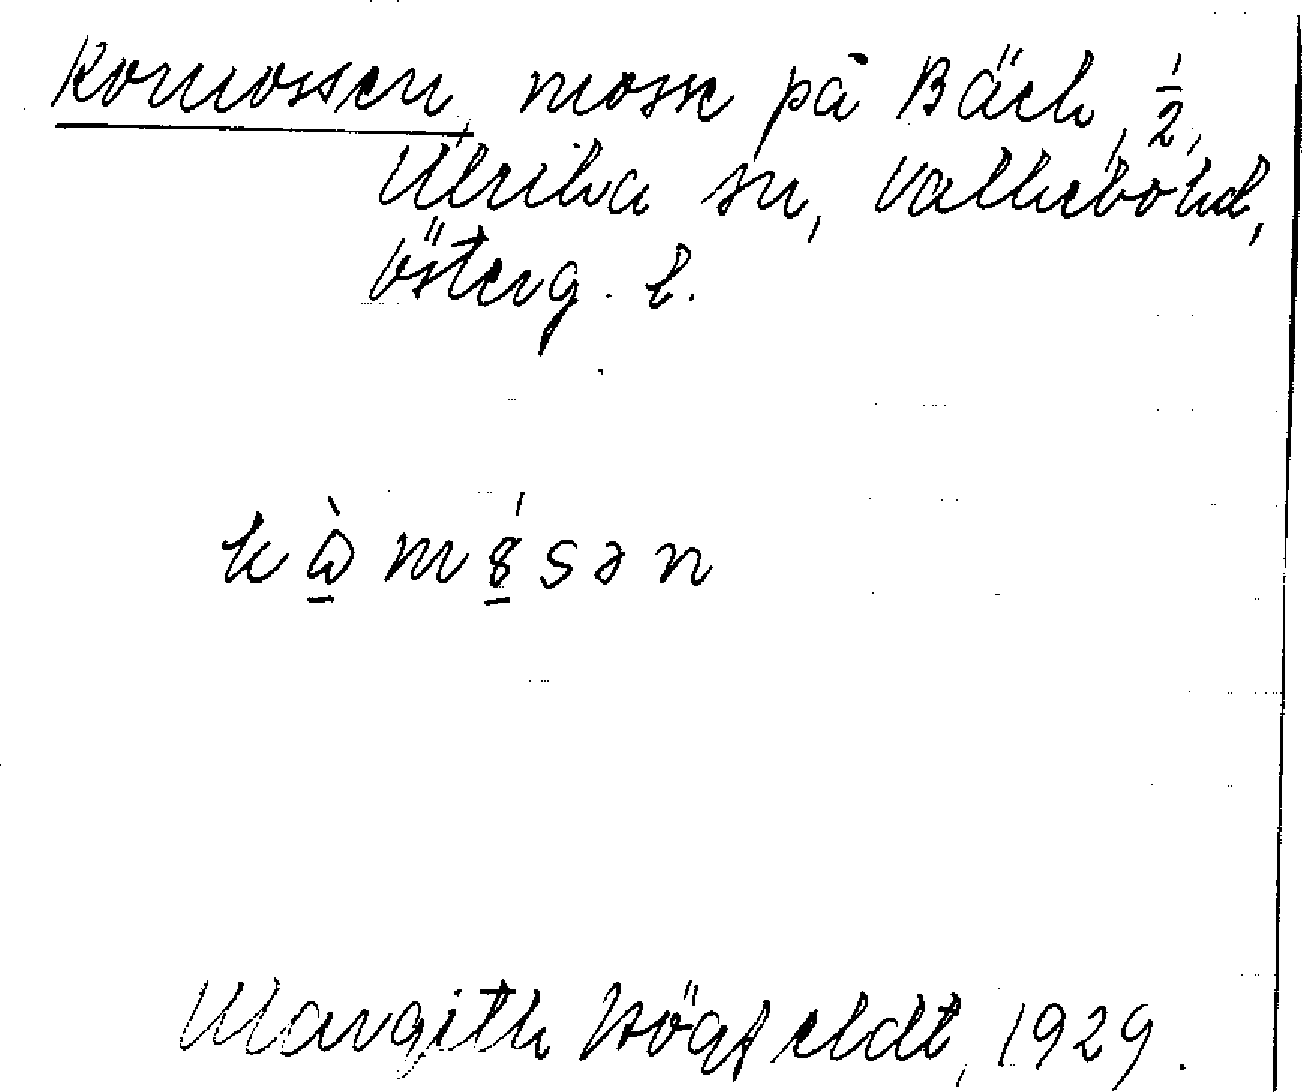 Komossen, mosse på Bäck, 1/2,
Ulrika sn, Valkebo hd,
Österg. l.
kὼmósən
Margith Högfeldt, 1929.